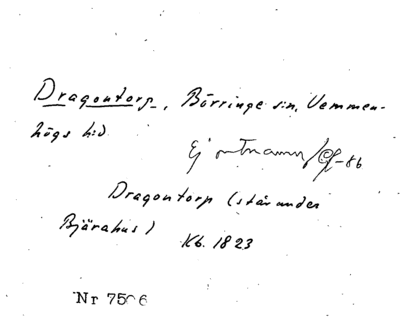 Dragontorp, Börringe sn, Vemmen-
högs hd
Ej ortnamn /
-86
Dragontorp (står under
Bjärahus)
Kb. 1823
Nr 7506